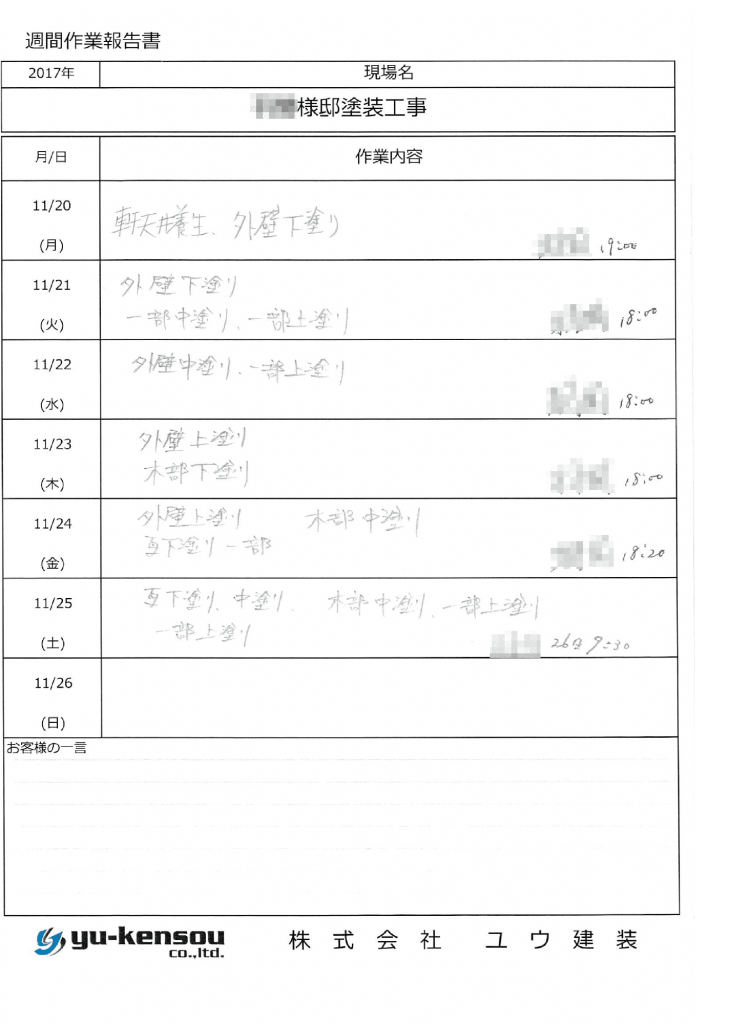 週間作業報告書
2017年 現場名
様邸塗装工事
月/日 作業内容
11/20
(月)
軒天井養生、外壁下塗り
19:00
11/21
(火)
外壁下塗り
一部中塗り、一部上塗り
18:00
11/22
(水)
外壁中塗り、一部上塗り
18:00
11/23
(木)
外壁上塗り
木部下塗り
18:00
11/24
(金)
外壁上塗り 木部中塗り
下塗り一部
18:20
11/25
(土)
下塗り、中塗り、 木部中塗り、一部上塗り
一部上塗り
26日 9:30
11/26
(日)
お客様の一言
yu-kensou
co.,ltd.
株式会社 ユウ建装